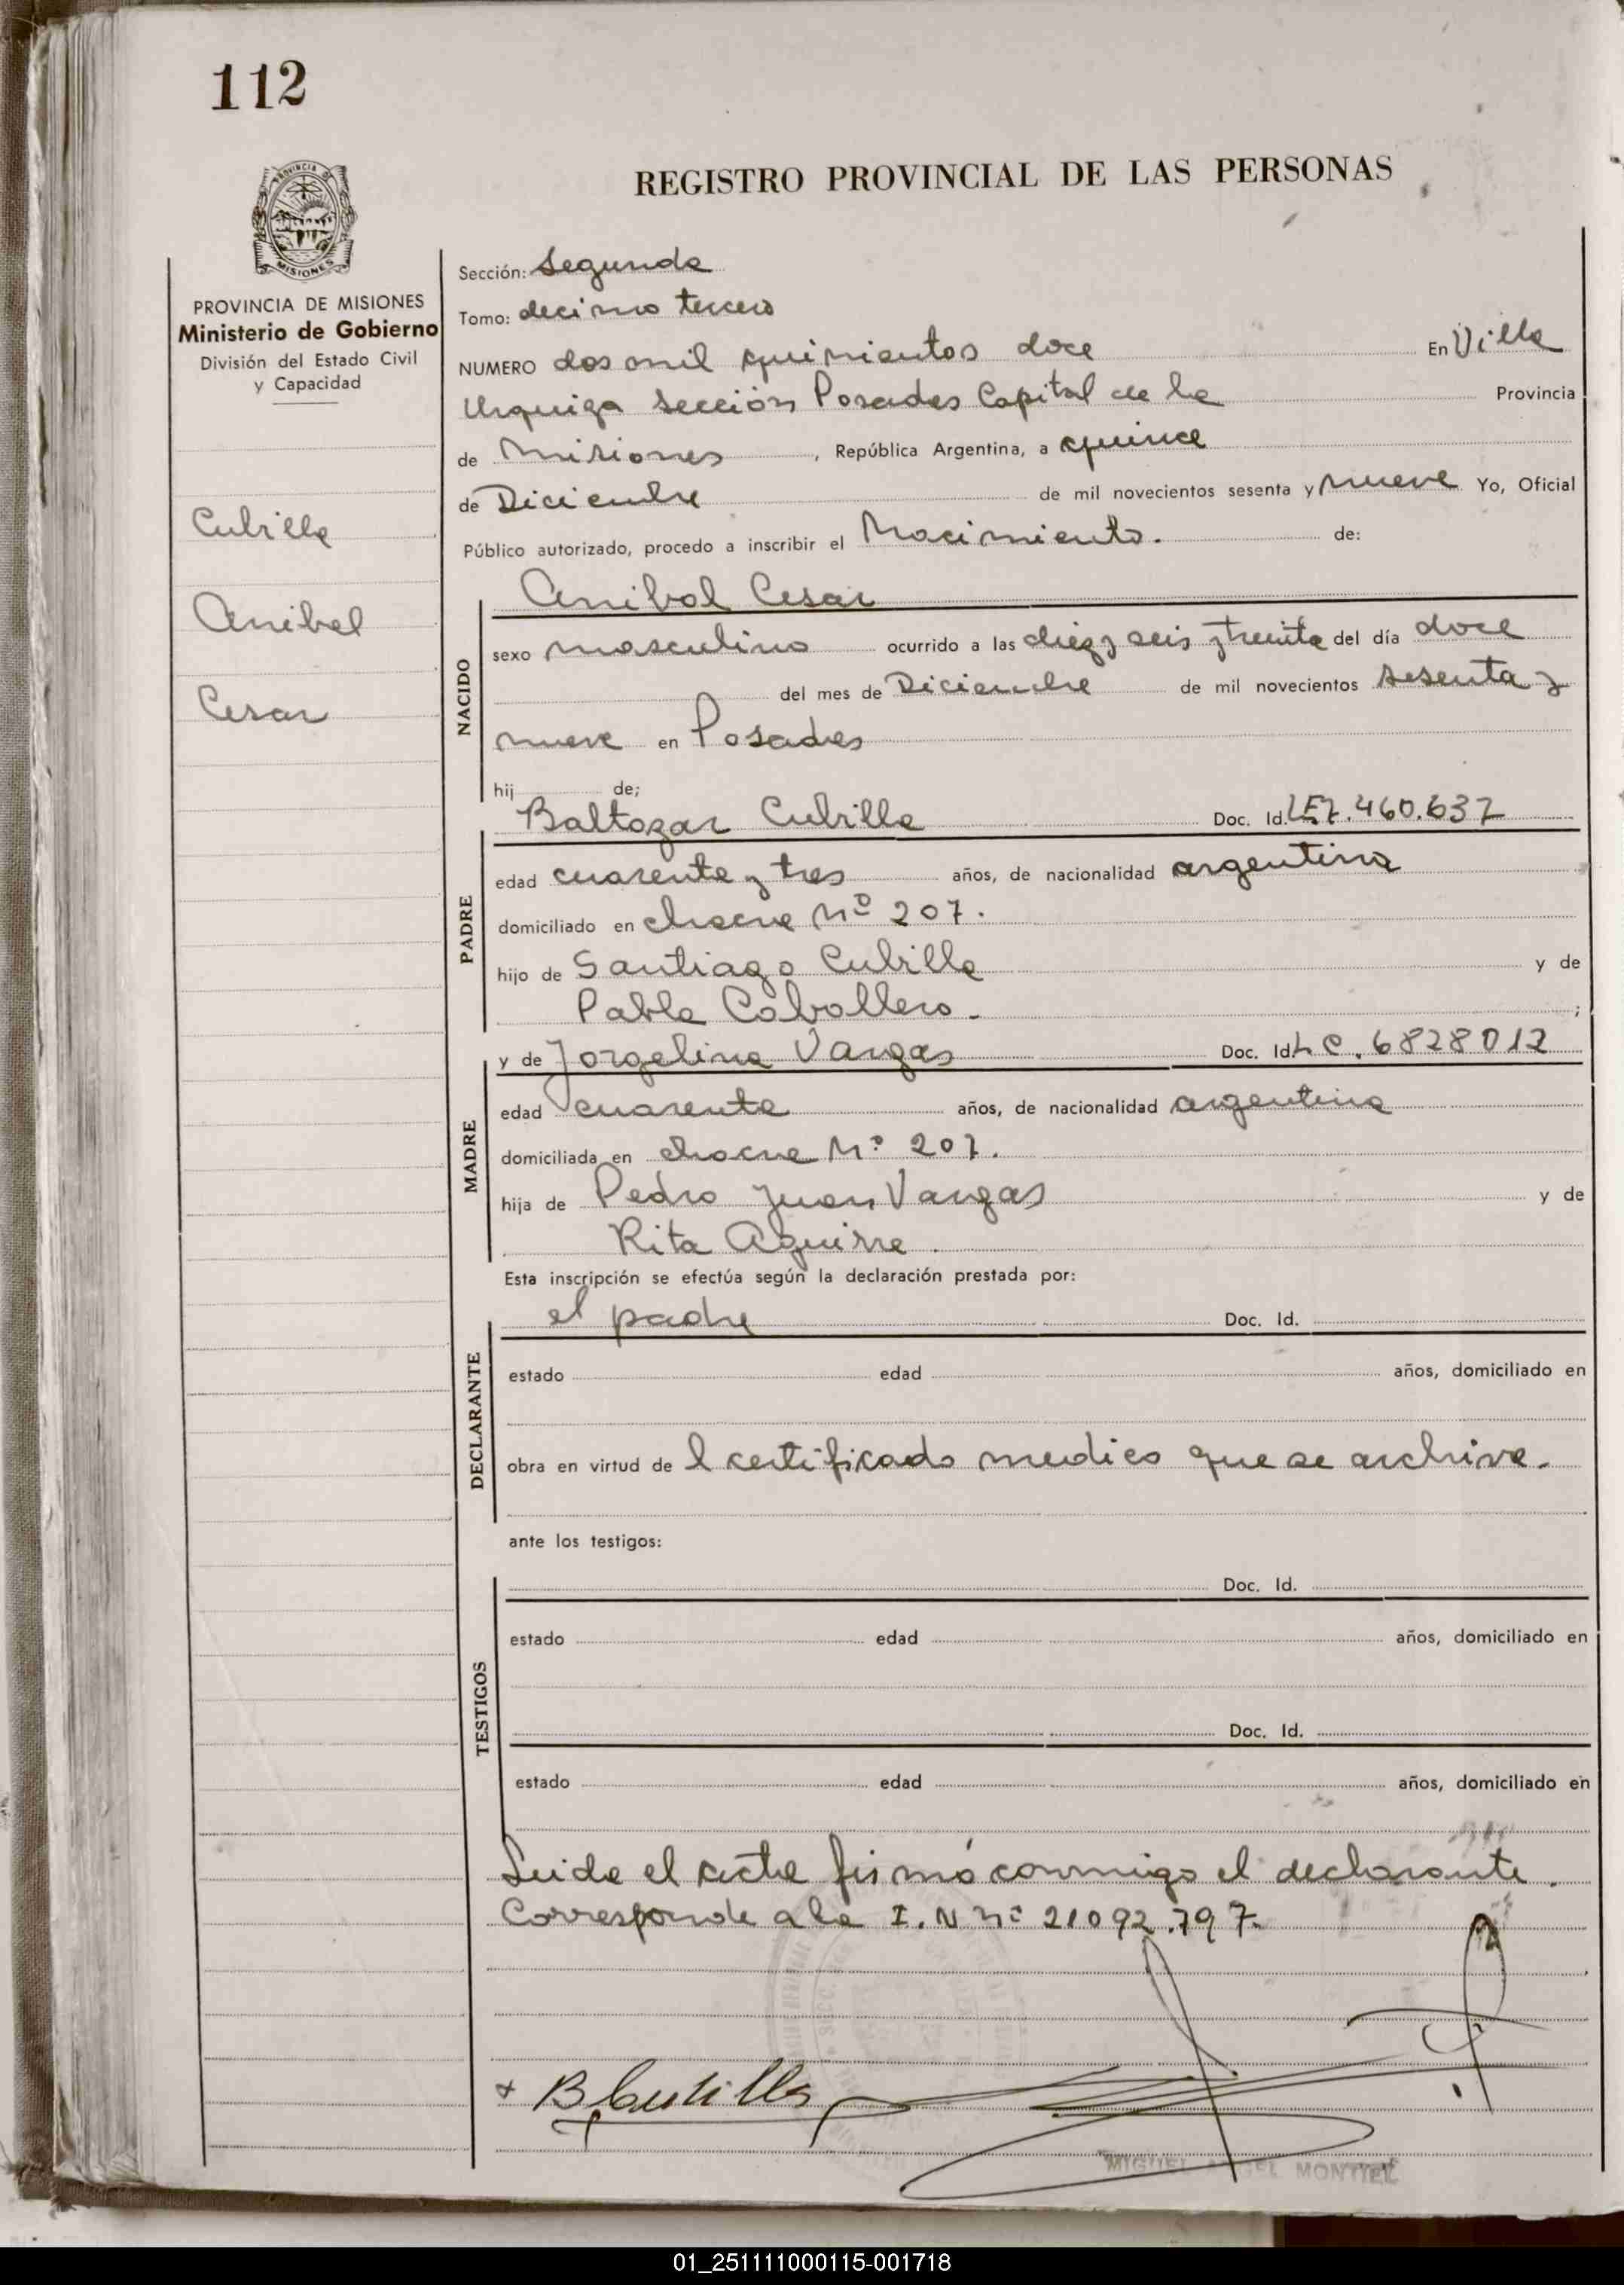 112
REGISTRO PROVINCIAL DE LAS PERSONAS
PROVINCIA DE
MISIONES
PROVINCIA DE MISIONES
Ministerio de Gobierno
División del Estado Civil
y Capacidad
Cubilla
Anibal
Cesar
Sección: Segunda
Tomo: decimo tercero
NUMERO dos mil quinientos doce En Villa
Urquiza Sección Posadas Capital de la Provincia
de Misiones, República Argentina, a quince
de Diciembre de mil novecientos sesenta y nueve Yo, Oficial
Público autorizado, procedo a inscribir el Nacimiento. de:
Anibal Cesar
NACIDO
sexo masculino ocurrido a las diez y seis y treinta del día doce
del mes de Diciembre de mil novecientos sesenta y
nueve en Posadas
hij de;
Baltazar Cubilla Doc. Id. LE7.460.637
PADRE
edad cuarenta y tres años, de nacionalidad argentina
domiciliado en chacra Nº 207.
hijo de Santiago Cubilla y de
Pabla Caballero. ;
y de Jorgelina Vargas Doc. Id. L C. 6828012
MADRE
edad cuarenta años, de nacionalidad argentina
domiciliada en chacra Nº 207.
hija de Pedro Juan Vargas y de
Rita Aguirre.
Esta inscripción se efectúa según la declaración prestada por:
el padre Doc. Id.
DECLARANTE
estado edad años, domiciliado en
obra en virtud de l certificado medico que se archiva.
ante los testigos:
Doc. Id.
TESTIGOS
estado edad años, domiciliado en
Doc. Id.
estado edad años, domiciliado en
Leida el acta firmó conmigo el declarante.
Corresponde a la I. N nº 21092.797.
x B Cubilla
MIGUEL ANGEL MONTIEL
01_251111000115-001718